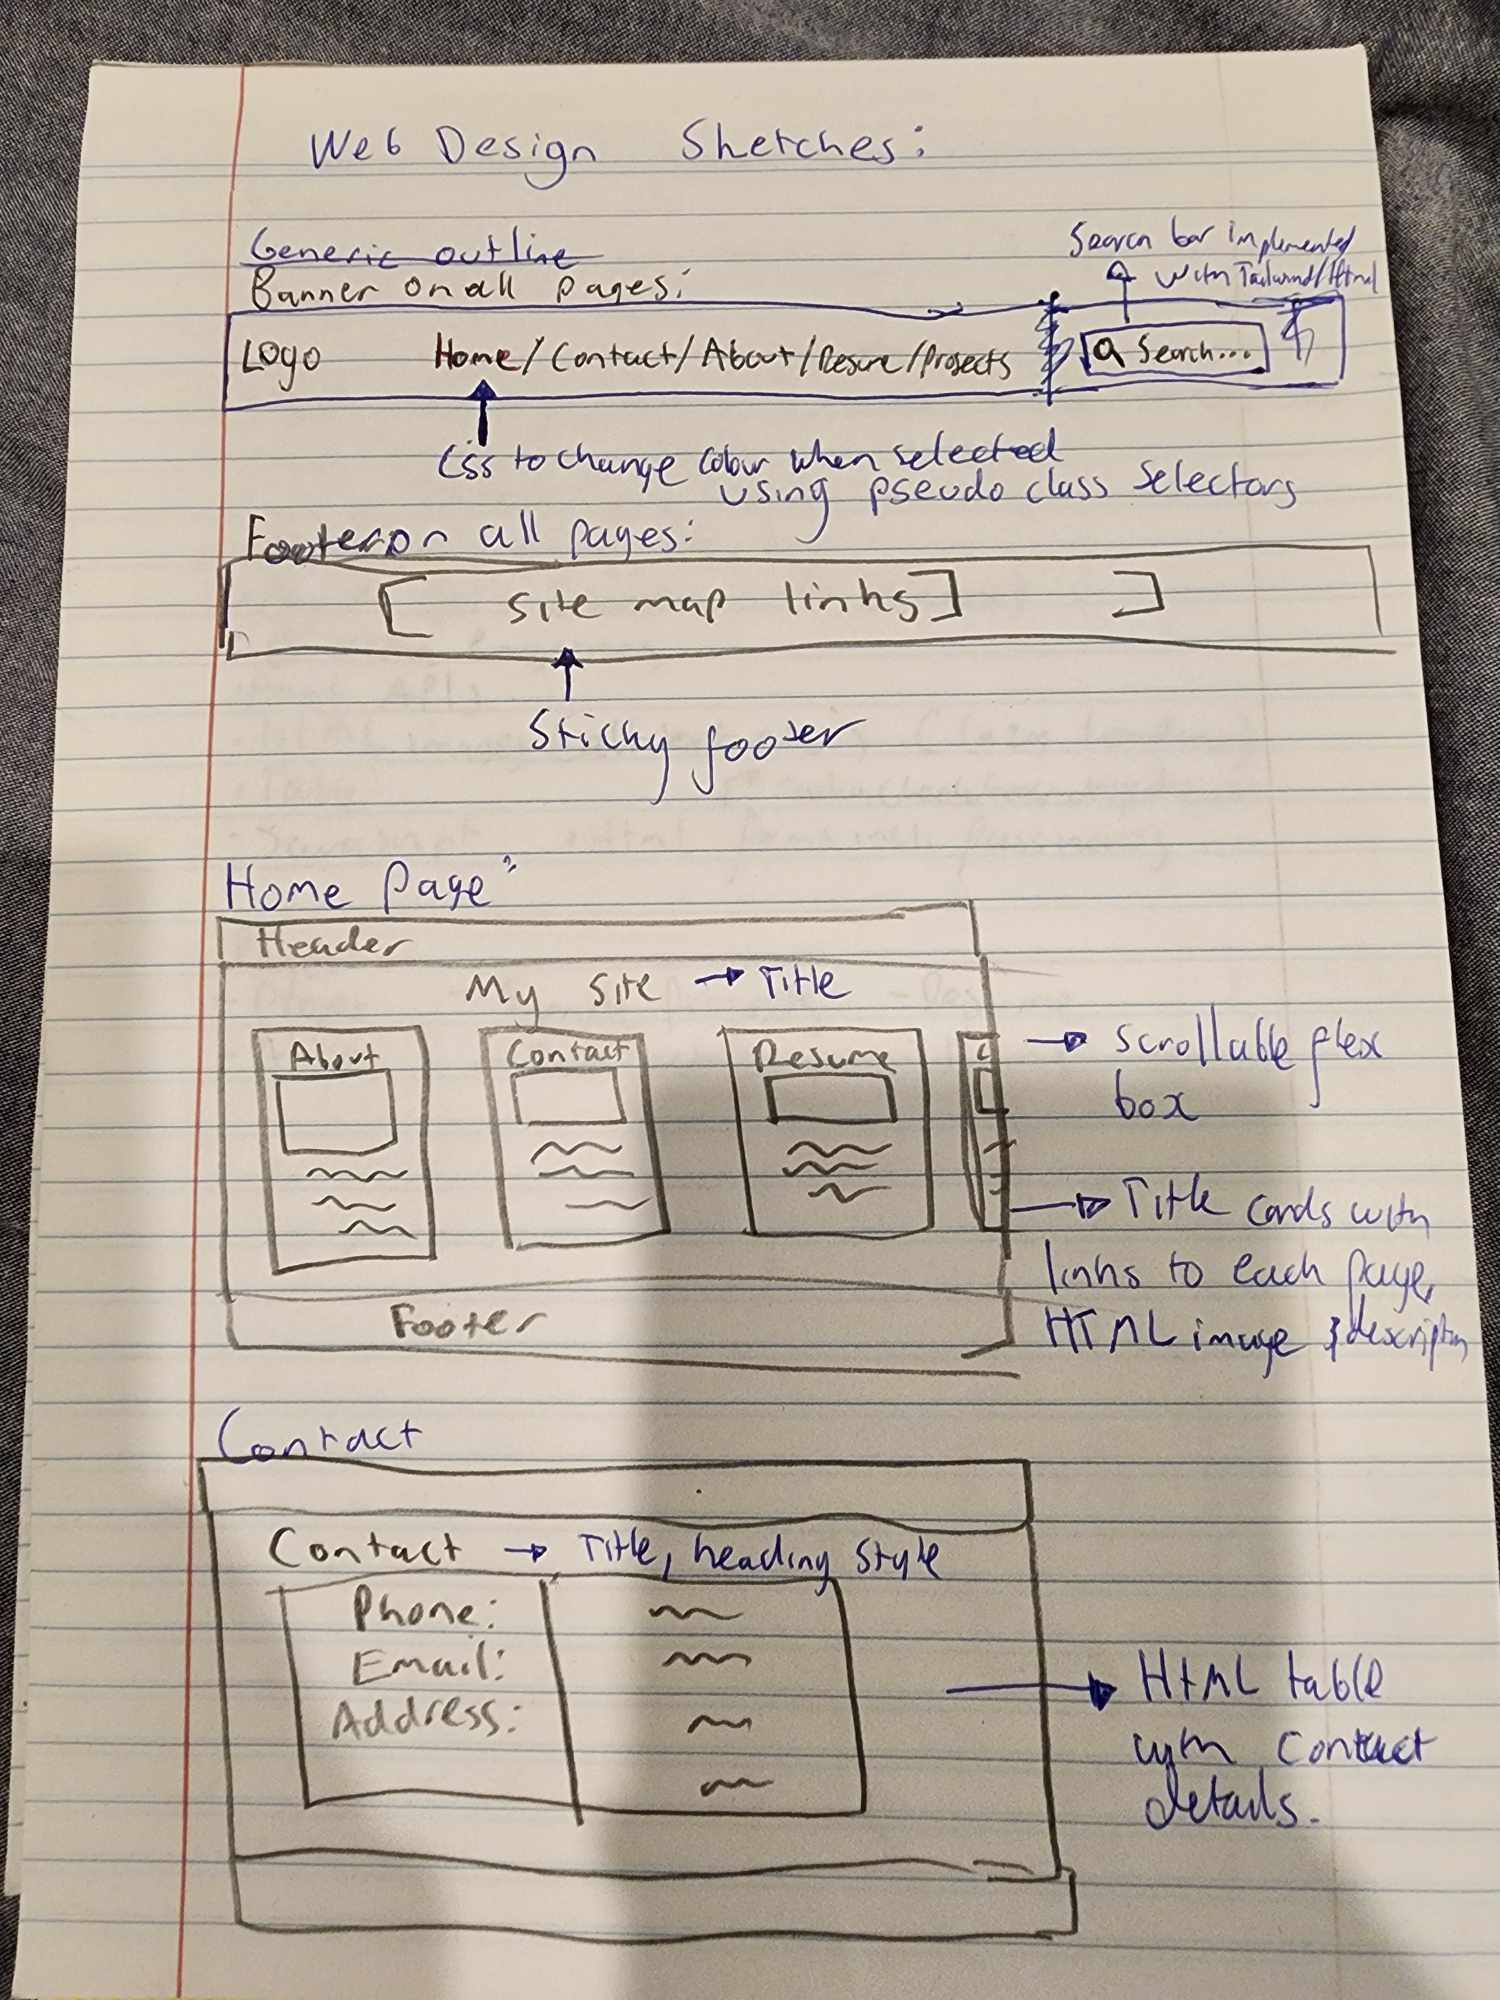 Web Design Sketches:
Generic outline
Banner on all pages:
Search bar implemented
with Tailwind/Html
Logo Home/Contact/About/Resume/Projects Search...
Css to change colour when selected
using pseudo class selectors
Footer on all pages:
[ site map links] ]
Sticky footer
Home Page:
Header
My site → Title
About Contact Resume
→ scrollable flex
box
→ Title cards with
links to each page,
HTML image & description
Footer
Contact
Contact → Title, heading style
Phone:
Email:
Address:
→ HTML table
with contact
details.